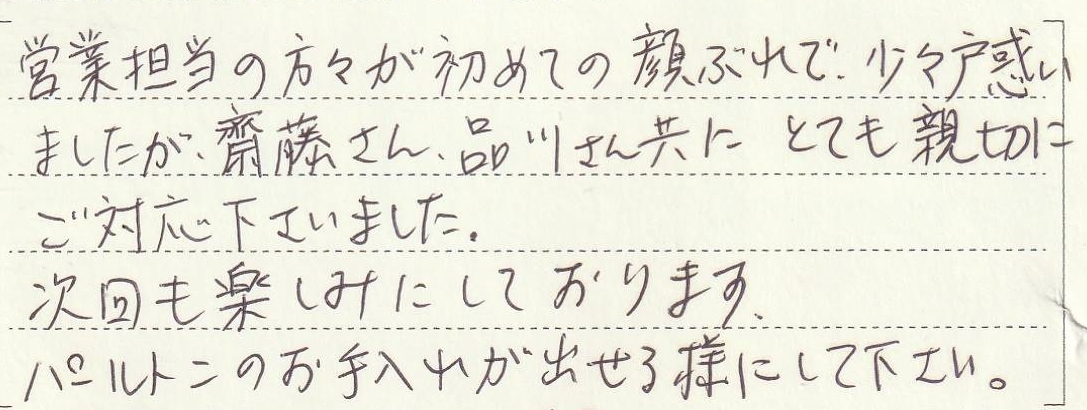 営業担当の方々が初めての顔ぶれで、少々戸惑い
ましたが、齋藤さん、品川さん共に とても親切に
ご対応下さいました。
次回も楽しみにしております。
パールトンのお手入れが出せる様にして下さい。